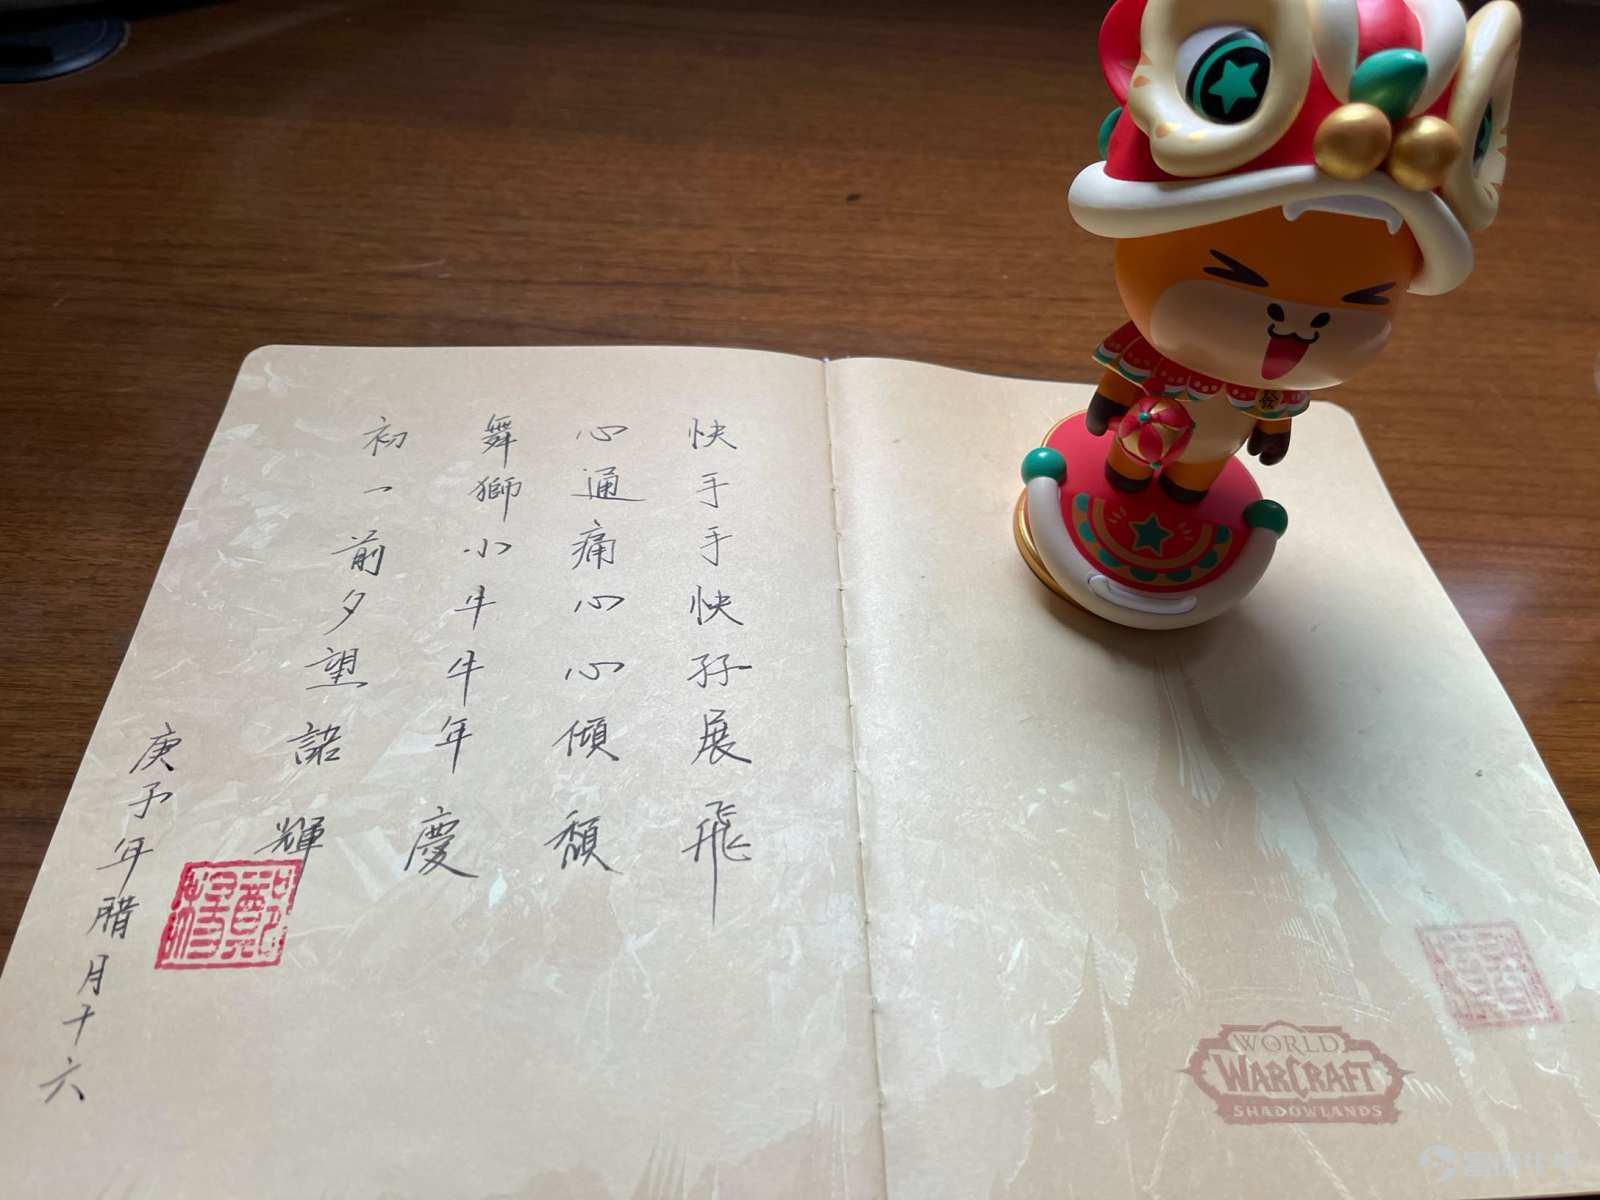 快手手快孖展飛
心通痛心心傾頹
舞獅小牛牛年慶
初一前夕望諾輝
庚子年腊月十六
WORLD
WARCRAFT
SHADOWLANDS